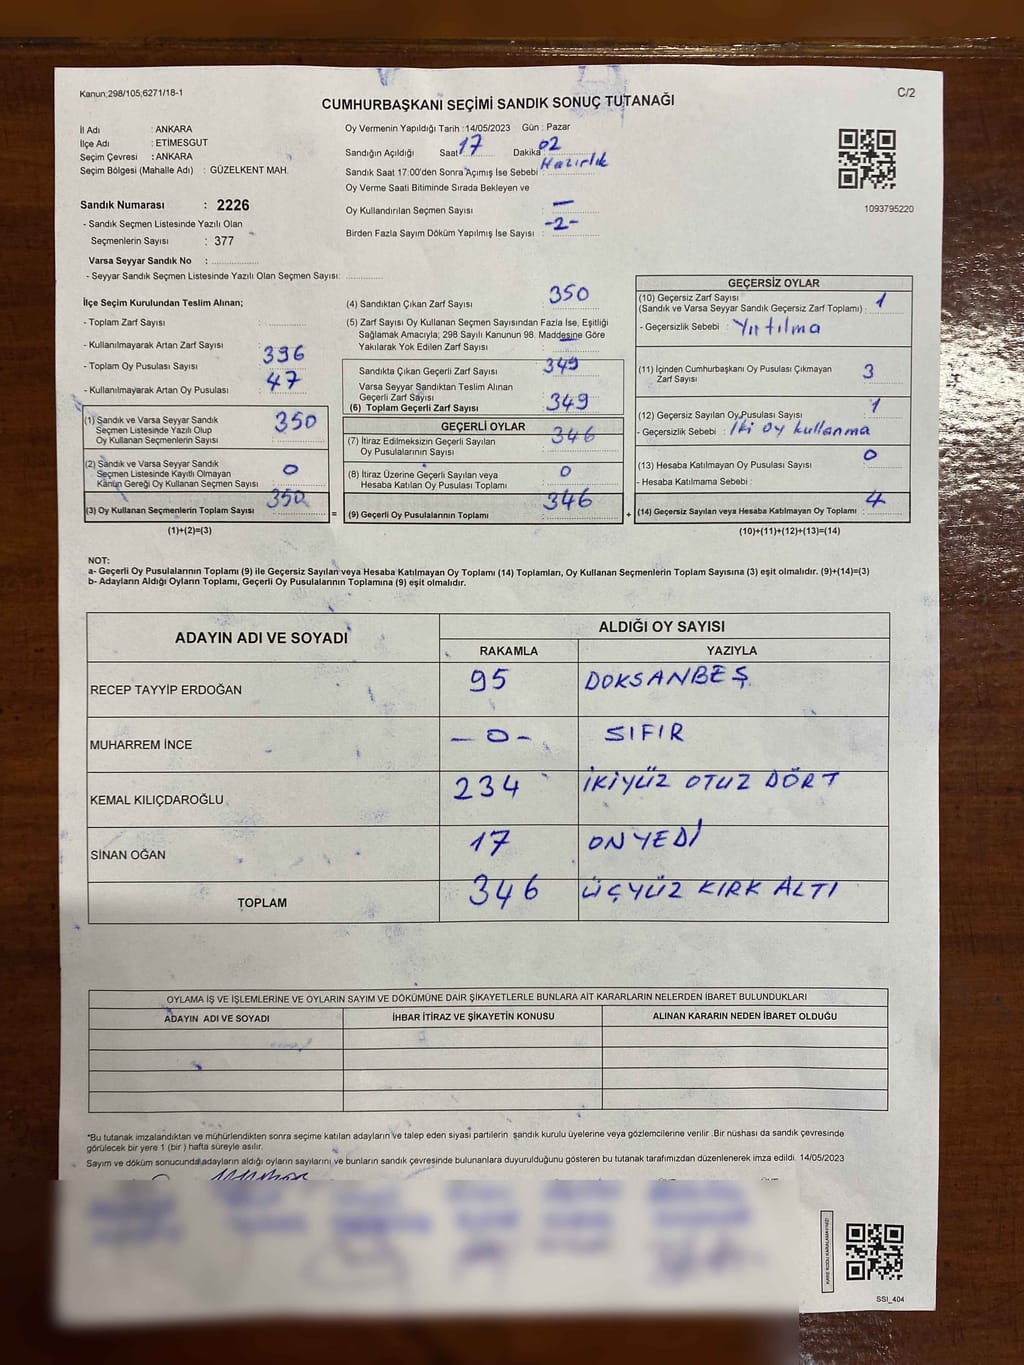 Kanun;298/105;6271/18-1
C/2
CUMHURBAŞKANI SEÇİMİ SANDIK SONUÇ TUTANAĞI
İl Adı : ANKARA
İlçe Adı : ETİMESGUT
Seçim Çevresi : ANKARA
Seçim Bölgesi (Mahalle Adı) : GÜZELKENT MAH.
Sandık Numarası : 2226
- Sandık Seçmen Listesinde Yazılı Olan
Seçmenlerin Sayısı : 377
Varsa Seyyar Sandık No :
- Seyyar Sandık Seçmen Listesinde Yazılı Olan Seçmen Sayısı:
Oy Vermenin Yapıldığı Tarih :14/05/2023 Gün : Pazar
Sandığın Açıldığı Saat 17 Dakika 02
Sandık Saat 17:00'den Sonra Açımış İse Sebebi : Hazırlık
Oy Verme Saati Bitiminde Sırada Bekleyen ve
Oy Kullandırılan Seçmen Sayısı : —
Birden Fazla Sayım Döküm Yapılmış İse Sayısı : -2-
1093795220
İlçe Seçim Kurulundan Teslim Alınan;
- Toplam Zarf Sayısı :
- Kullanılmayarak Artan Zarf Sayısı :
- Toplam Oy Pusulası Sayısı : 396
- Kullanılmayarak Artan Oy Pusulası : 47
(1) Sandık ve Varsa Seyyar Sandık
Seçmen Listesinde Yazılı Olup
Oy Kullanan Seçmenlerin Sayısı : 350
(2) Sandık ve Varsa Seyyar Sandık
Seçmen Listesinde Kayıtlı Olmayan
Kanun Gereği Oy Kullanan Seçmen Sayısı : 0
(3) Oy Kullanan Seçmenlerin Toplam Sayısı : 350
(1)+(2)=(3)
(4) Sandıktan Çıkan Zarf Sayısı : 350
(5) Zarf Sayısı Oy Kullanan Seçmen Sayısından Fazla İse, Eşitliği
Sağlamak Amacıyla; 298 Sayılı Kanunun 98. Maddesine Göre
Yakılarak Yok Edilen Zarf Sayısı : —
Sandıkta Çıkan Geçerli Zarf Sayısı : 349
Varsa Seyyar Sandıktan Teslim Alınan
Geçerli Zarf Sayısı
(6) Toplam Geçerli Zarf Sayısı : 349
GEÇERLİ OYLAR
(7) İtiraz Edilmeksizin Geçerli Sayılan
Oy Pusulalarının Sayısı : 346
(8) İtiraz Üzerine Geçerli Sayılan veya
Hesaba Katılan Oy Pusulası Toplamı : 0
= (9) Geçerli Oy Pusulalarının Toplamı : 346 +
GEÇERSİZ OYLAR
(10) Geçersiz Zarf Sayısı
(Sandık ve Varsa Seyyar Sandık Geçersiz Zarf Toplamı) : 1
- Geçersizlik Sebebi : Yırtılma
(11) İçinden Cumhurbaşkanı Oy Pusulası Çıkmayan
Zarf Sayısı : 3
(12) Geçersiz Sayılan Oy Pusulası Sayısı : 1
- Geçersizlik Sebebi : İki oy kullanma
(13) Hesaba Katılmayan Oy Pusulası Sayısı : 0
- Hesaba Katılmama Sebebi :
(14) Geçersiz Sayılan veya Hesaba Katılmayan Oy Toplamı : 4
(10)+(11)+(12)+(13)=(14)
NOT:
a- Geçerli Oy Pusulalarının Toplamı (9) ile Geçersiz Sayılan veya Hesaba Katılmayan Oy Toplamı (14) Toplamları, Oy Kullanan Seçmenlerin Toplam Sayısına (3) eşit olmalıdır. (9)+(14)=(3)
b- Adayların Aldığı Oyların Toplamı, Geçerli Oy Pusulalarının Toplamına (9) eşit olmalıdır.
ADAYIN ADI VE SOYADI
ALDIĞI OY SAYISI
RAKAMLA YAZIYLA
RECEP TAYYİP ERDOĞAN 95 DOKSANBEŞ
MUHARREM İNCE — 0 — SIFIR
KEMAL KILIÇDAROĞLU 234 İKİYÜZ OTUZ DÖRT
SİNAN OĞAN 17 ONYEDİ
TOPLAM 346 ÜÇYÜZ KIRK ALTI
OYLAMA İŞ VE İŞLEMLERİNE VE OYLARIN SAYIM VE DÖKÜMÜNE DAİR ŞİKAYETLERLE BUNLARA AİT KARARLARIN NELERDEN İBARET BULUNDUKLARI
ADAYIN ADI VE SOYADI İHBAR İTİRAZ VE ŞİKAYETİN KONUSU ALINAN KARARIN NEDEN İBARET OLDUĞU
*Bu tutanak imzalandıktan ve mühürlendikten sonra seçime katılan adayların ve talep eden siyasi partilerin sandık kurulu üyelerine veya gözlemcilerine verilir. Bir nüshası da sandık çevresinde
görülecek bir yere 1 (bir) hafta süreyle asılır.
Sayım ve döküm sonucunda adayların aldığı oyların sayılarını ve bunların sandık çevresinde bulunanlara duyurulduğunu gösteren bu tutanak tarafımızdan düzenlenerek imza edildi. 14/05/2023
KARE KODU KARALAMAYINIZ!
SSI_404